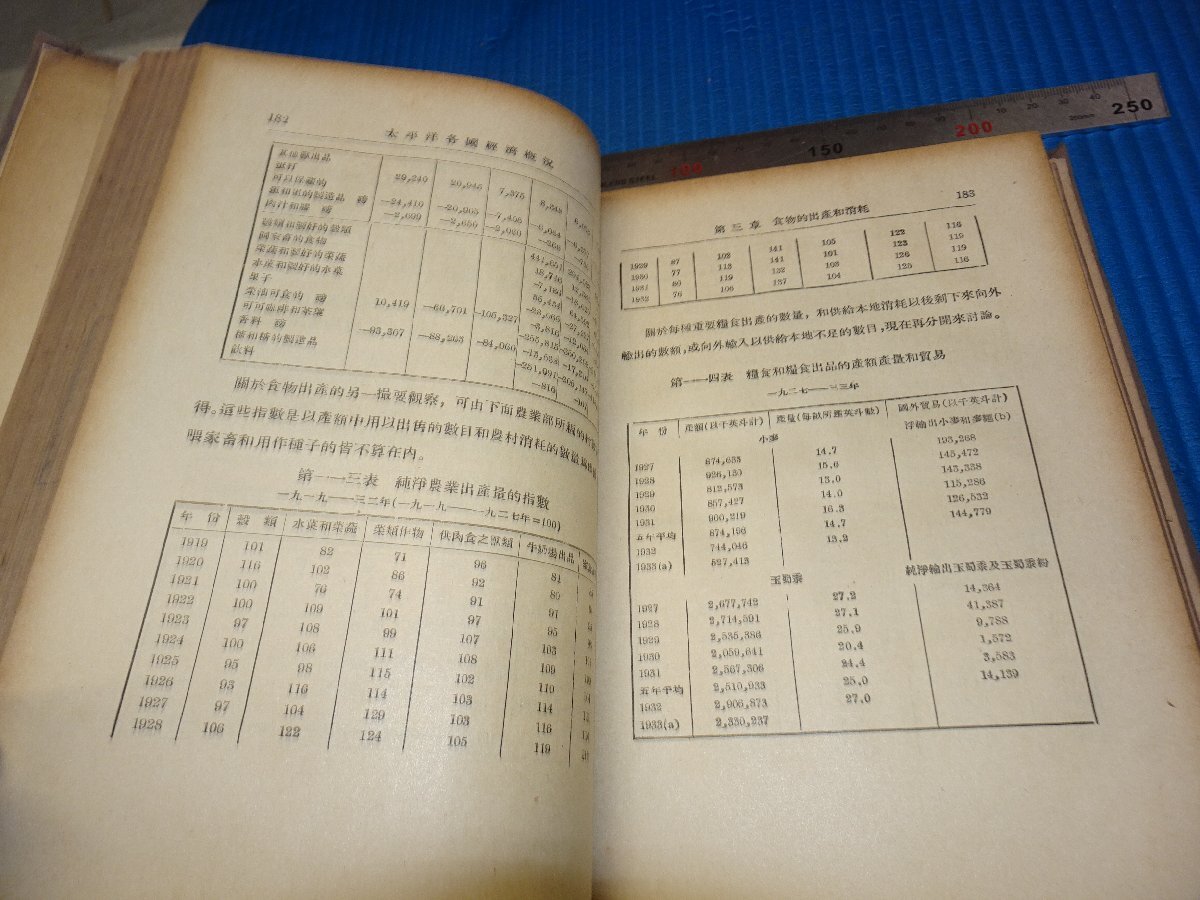 182
太平洋各國經濟概況
其他獸出品
蛋打 29,240 20,945 7,375
可以保藏的
蛋和蛋的製造品 磅 —24,419 —20,905 —7,495
肉汁和膠 磅 —2,699 —2,650 —2,920
穀類和製好的穀類
國家畜的食物
菜蔬和製好的菜蔬
水菓和製好的水菓
菓子
菜油可食的 磅 10,419 —66,701 —105,327
可可咖啡和茶葉
香料 磅 —93,367 —88,263 —84,060
糖和糖的製造品
飲料
關於食物出產的另一撮要觀察,可由下面農業部所編的
得。這些指數是以產額中用以出售的數目和農村消耗的數量為
喂家畜和用作種子的皆不算在內。
第一一三表 純淨農業出產量的指數
一九一九—三二年(一九一九—一九二七年=100)
年份 穀類 水菓和菜蔬 菜類作物 供肉食之獸類 牛奶場出品
1919 101 82 71 96 81
1920 116 102 86 92 80
1921 100 76 74 91 91
1922 100 109 101 97 95
1923 97 108 99 107 103
1924 100 106 111 108 109
1925 95 98 115 102 110
1926 93 116 114 103 114
1927 97 104 129 103 116
1928 106 122 124 105 119
第三章 食物的出產和消耗 183
1929 87 102 141 105 122 116
1930 77 113 141 101 123 119
1931 80 119 132 103 126 119
1932 76 106 137 104 125 116
關於每種重要糧食出產的數量,和供給本地消耗以後剩下來向外
輸出的數額,或向外輸入以供給本地不足的數目,現在再分開來討論。
第一一四表 糧食和糧食出品的產額產量和貿易
一九二七—三三年
年份 產額(以千英斗計) 產量(每畝所產英斗數) 國外貿易(以千英斗計)
小麥 淨輸出小麥和麥麵(b)
1927 874,633 14.7 193,268
1928 926,130 15.6 145,472
1929 812,573 13.0 143,338
1930 857,427 14.0 115,286
1931 900,219 16.3 126,532
五年平均 874,196 14.7 144,779
1932 744,046 13.2
1933(a) 527,413
玉蜀黍 純淨輸出玉蜀黍及玉蜀黍粉
1927 2,677,742 27.2 14,364
1928 2,714,591 27.1 41,387
1929 2,535,386 25.9 9,788
1930 2,059,641 20.4 1,572
1931 2,567,306 24.4 3,583
五年平均 2,510,933 25.0 14,139
1932 2,906,873 27.0
1933(a) 2,330,237
100 150 200 250